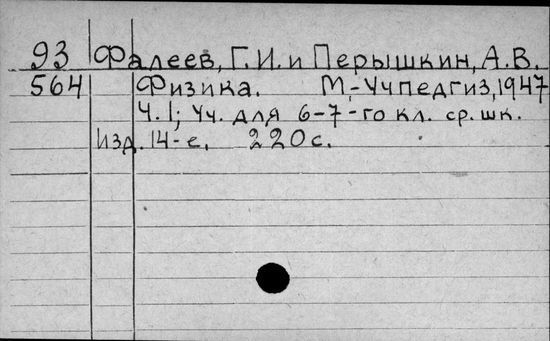 93 Фалеев, Г.И. и Перышкин, А.В.
564 Физика. М.-Учпедгиз, 1947
Ч. I; Уч. для 6-7-го кл. ср. шк.
Изд. 14-е. 220 с.